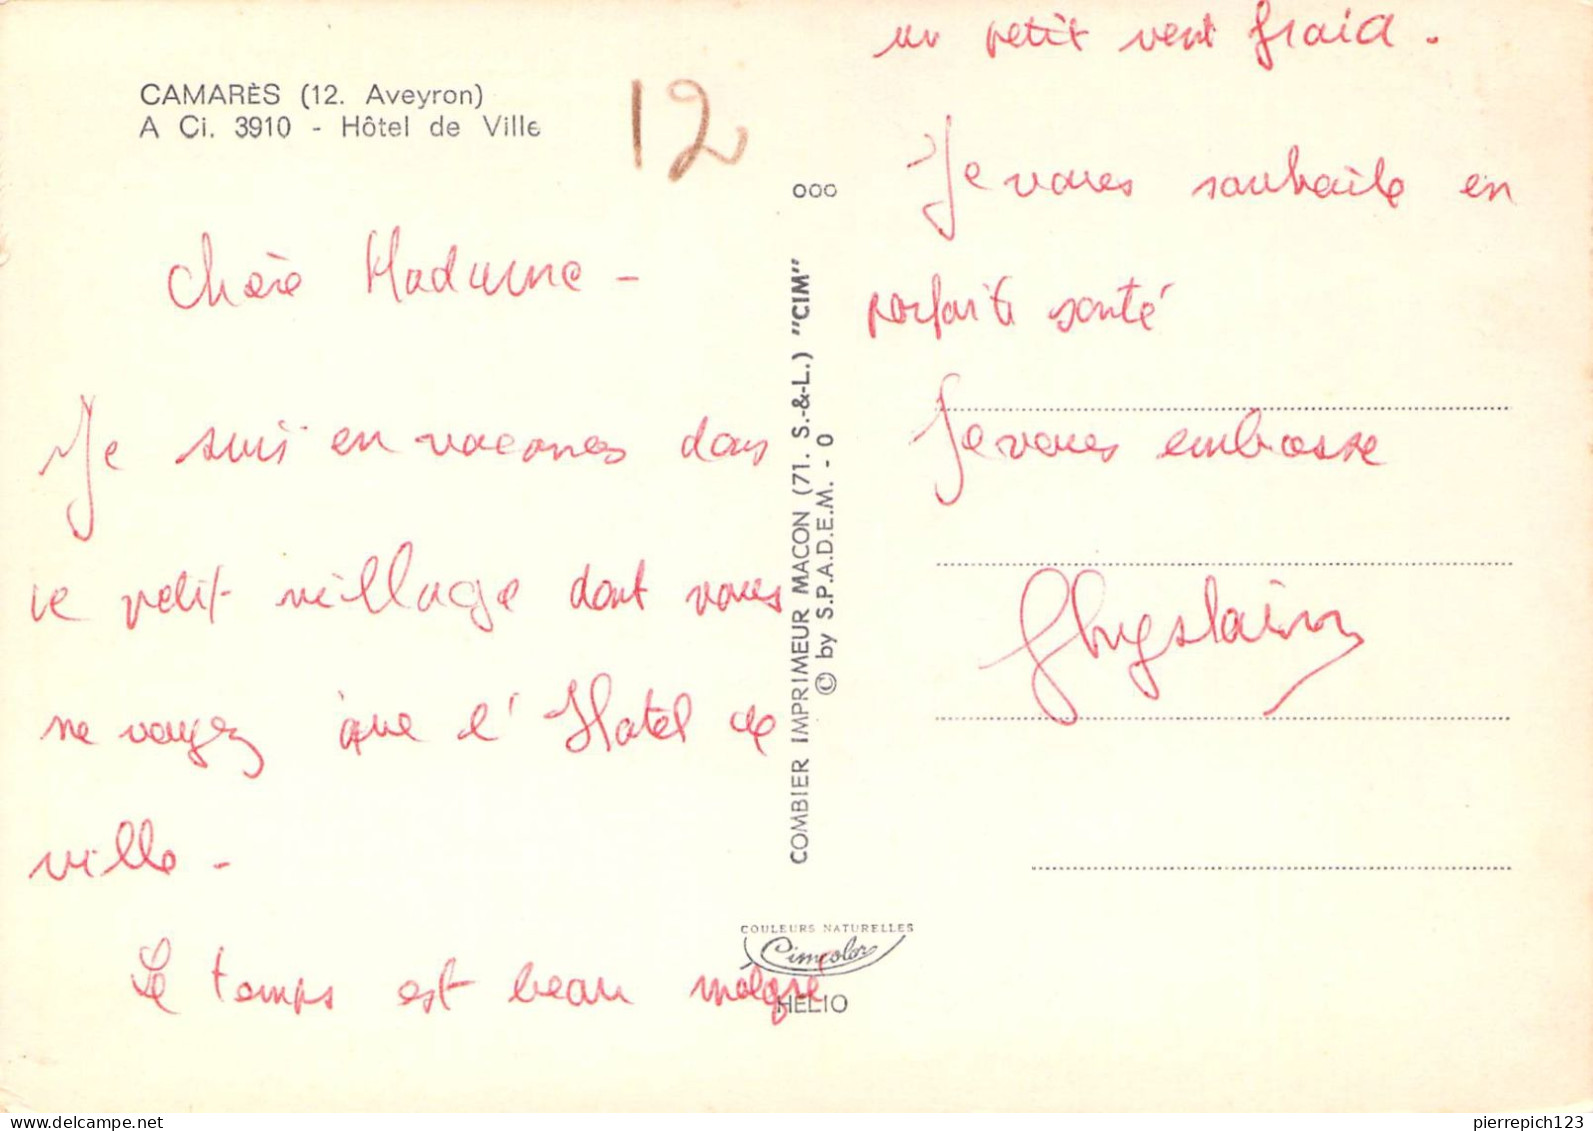 CAMARÈS (12. Aveyron)
A Ci. 3910 - Hôtel de Ville
12
Chère Madame -
Je suis en vacances dans
ce petit village dont vous
ne voyez que l'Hotel de
ville -
Le temps est beau malgré
un petit vent froid.
Je vous souhaite en
parfaite santé
Je vous embrasse
Ghyslain
ooo
COMBIER IMPRIMEUR MACON (71. S.-&-L.) "CIM"
© by S.P.A.D.E.M. - O
COULEURS NATURELLES
Cimcolor
HELIO
pierrepich123